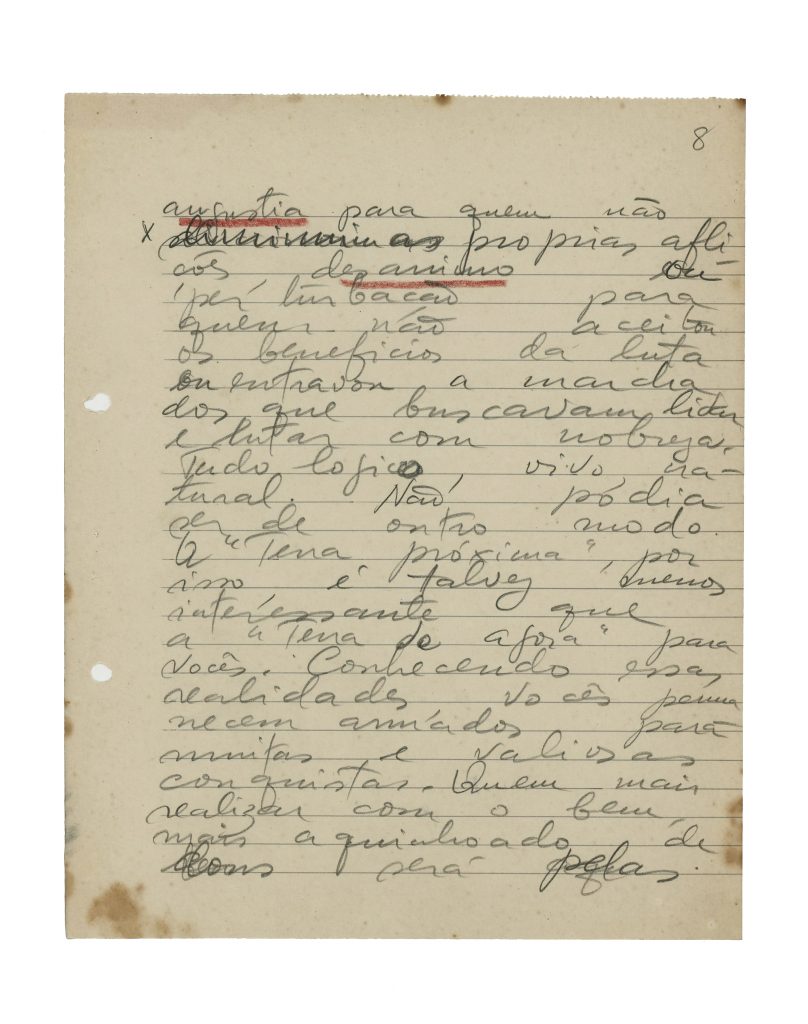 8
angustia para quem não
x as proprias afli
ções desanimo ou
perturbação para
quem não aceitou
os beneficios da luta
ou entravou a marcha
dos que buscavam lidar
e lutar com nobreza.
Tudo logico, vivo na-
tural. Não, pódia
ser de outro modo.
A "Terra próxima", por
isso é talvez menos
interessante que
a "Terra de agora" para
vocês. Conhecendo essas
realidades vocês perma
necem armados para
muitas e valiosas
conquistas. Quem mais
realizar com o bem,
mais aquinhoado de
bens será pelas